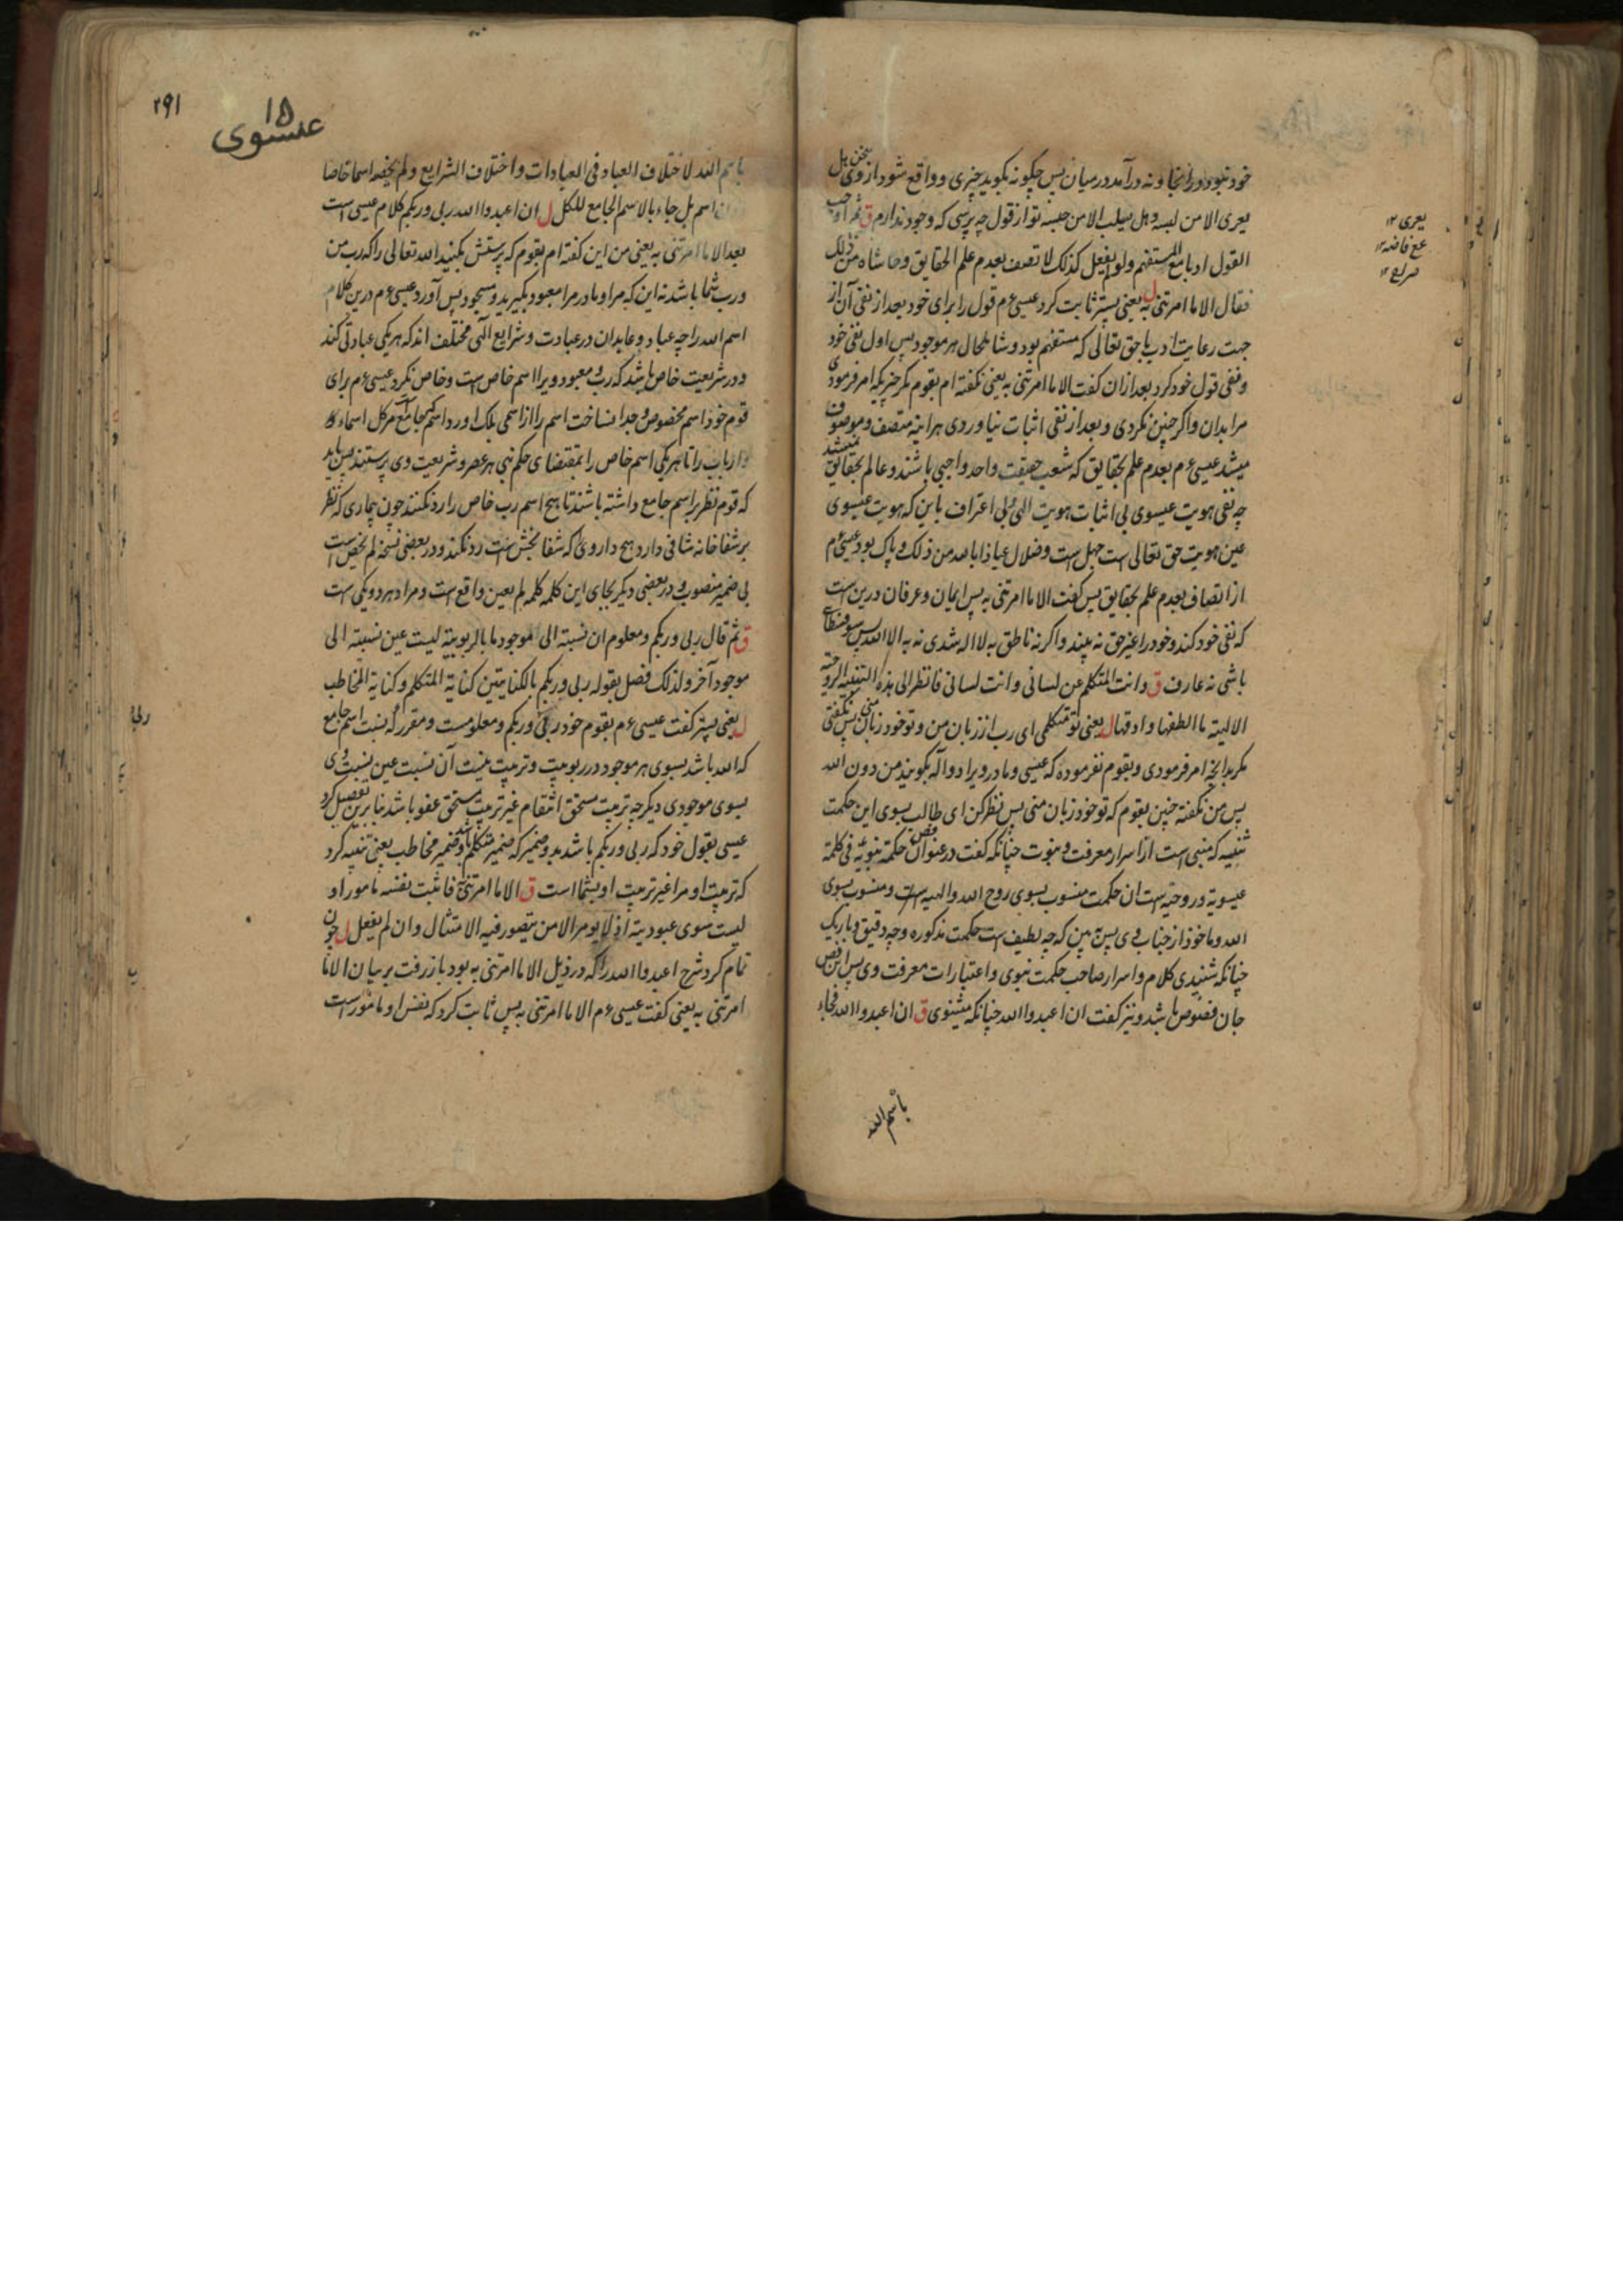 خود نبود او را انجا و نه درآمد در میان پس چگونه بگوید چیزی و واقع شود از وی سخن بل
یعری الا من لبسه و هل یسلب الا من حبسه تو از قول چه پرسی که وجود ندارم ق ثم اوجب
القول ادبا مع المستفهم ولو لم یفعل کذلک لاتصف بعدم علم الحقایق وحاشاه من ذلک
فقال الا ما امرتنی به ل یعنی پستر ثابت کرد عیسی ع م قول را برای خود بعد از نفی آن از
جهت رعایت ادب با حق تعالی که مستفهم بود و شامل حال هر موجود پس اول نفی خود
و نفی قول خود کرد بعد ازان گفت الا ما امرتنی به یعنی نگفته ام بقوم مگر چیزیکه امر فرمودی
مرا بدان و اگر چنین نکردی و بعد از نفی اثبات نیاوردی هراینه متصف و موصوف
میشد عیسی ع م بعدم علم بحقایق که شعب حقیقت واحد واجبی باشند و عالم بحقایق نمیشد
چه نفی هویت عیسوی بی اثبات هویت الهی و بی اعتراف باین که هویت عیسوی
عین هویت حق تعالی است جهل است و ضلال عیاذا بالله من ذلک و پاک بود عیسی ع م
از اتصاف بعدم علم بحقایق پس گفت الا ما امرتنی به پس ایمان و عرفان درین است
که نفی خود کند و خود را غیر حق نه بیند و اگر نه ناطق به لا اله شدی نه به الا الله پس
باشی نه عارف ق وانت المتکلم عن لسانی وانت لسانی فانظر الی هذه التنبیه الروحیة
الالهیة ما الطفها وادقها ل یعنی تو متکلمی ای رب از زبان من و تو خود زبان منی پس نگفتی
مگر بدانچه امر فرمودی و بقوم نفرموده که عیسی و مادر ویرا دو آله بگویند من دون الله
پس من نگفته چنین بقوم که تو خود زبان منی پس نظر کن ای طالب بسوی این حکمت
تنبیه که منبی است از اسرار معرفت و نبوت چنانکه گفت در عنوان فص حکمة نبویة فی کلمة
عیسویة و روحیه است ان حکمت منسوب بسوی روح الله و الهیه است و منسوب بسوی
الله و ماخوذ از جناب وی پس به بین که چه لطیف است حکمت مذکوره و چه دقیق و باریک
چنانکه شنیدی کلام و اسرار صاحب حکمت نبوی و اعتبارات معرفت وی پس این فص
جان فصوص باشد و نیز گفت ان اعبدوا الله چنانکه میشنوی ق ان اعبدوا الله فجاء
باسم الله
یعری ۱۲
صراح ۱۲
۲۹۱
۱۵
عیسوی
باسم الله لاختلاف العباد فی العبادات واختلاف الشرایع ولم یخص اسما خاصا
دون اسم بل جاء بالاسم الجامع للکل ل ان اعبدوا الله ربی وربکم کلام عیسی است
بعد الا ما امرتنی به یعنی من این گفته ام بقوم که پرستش بکنید الله تعالی را که رب من
و رب شما باشد نه این که مرا و مادر مرا معبود بگیرید و مسجود پس آورد عیسی ع م درین کلام
اسم الله را چه عباد و عابدان در عبادت و شرایع الهی مختلف اند که هر یکی عبادتی کند
و در شریعت خاص باشد که رب و معبود ویرا اسم خاص است و خاص نکرد عیسی ع م برای
قوم خود اسم مخصوص و جدا نساخت اسم را از اسمی بلکه اورد اسم که جامع است مر کل اسماء را
و ارباب را تا هر یکی اسم خاص را بمقتضای حکم نبی هر عصر و شریعت وی پرستیدند پس باید
که قوم نظر بر اسم جامع داشته باشند تا هیچ اسم رب خاص را رد نکنند چون بیماری که نظر
بر شفا خانه شافی دارد هیچ داروی که شفا بخش است رد نکند و در بعضی نسخه لم یخص است
بی ضمیر منصوب و در بعضی دیگر بجای این کلمه کلمه لم یعین واقع است و مراد هر دو یکی است
ق ثم قال ربی وربکم ومعلوم ان نسبته الی موجود ما بالربوبیة لیست عین نسبته الی
موجود آخر ولذلک فصل بقوله ربی وربکم بالکنایتین کنایة المتکلم وکنایة المخاطب
ل یعنی پستر گفت عیسی ع م بقوم خود ربی وربکم و معلومست و مقرر که نسبت اسم جامع
که الله باشد بسوی هر موجود در ربوبیت و تربیت نیست آن نسبت عین نسبت وی
بسوی موجودی دیگر چه تربیت مستحق انتقام غیر تربیت مستحق عفو باشد بنا برین تفصیل کرد
عیسی بقول خود که ربی وربکم باشد بدو ضمیر که ضمیر متکلم باشد و ضمیر مخاطب یعنی تنبیه کرد
که تربیت او مرا غیر تربیت او بشما است ق الا ما امرتنی به فاثبت نفسه مامورا و
لیست سوی عبودیته اذ لا یومر الا من یتصور فیه الامتثال وان لم یفعل ل چون
تمام کرد شرح اعبدوا الله را که در ذیل الا ما امرتنی به بود باز رفت بر بیان الا ما
امرتنی به یعنی گفت عیسی ع م الا ما امرتنی به پس ثابت کرد که نفس او مامور است